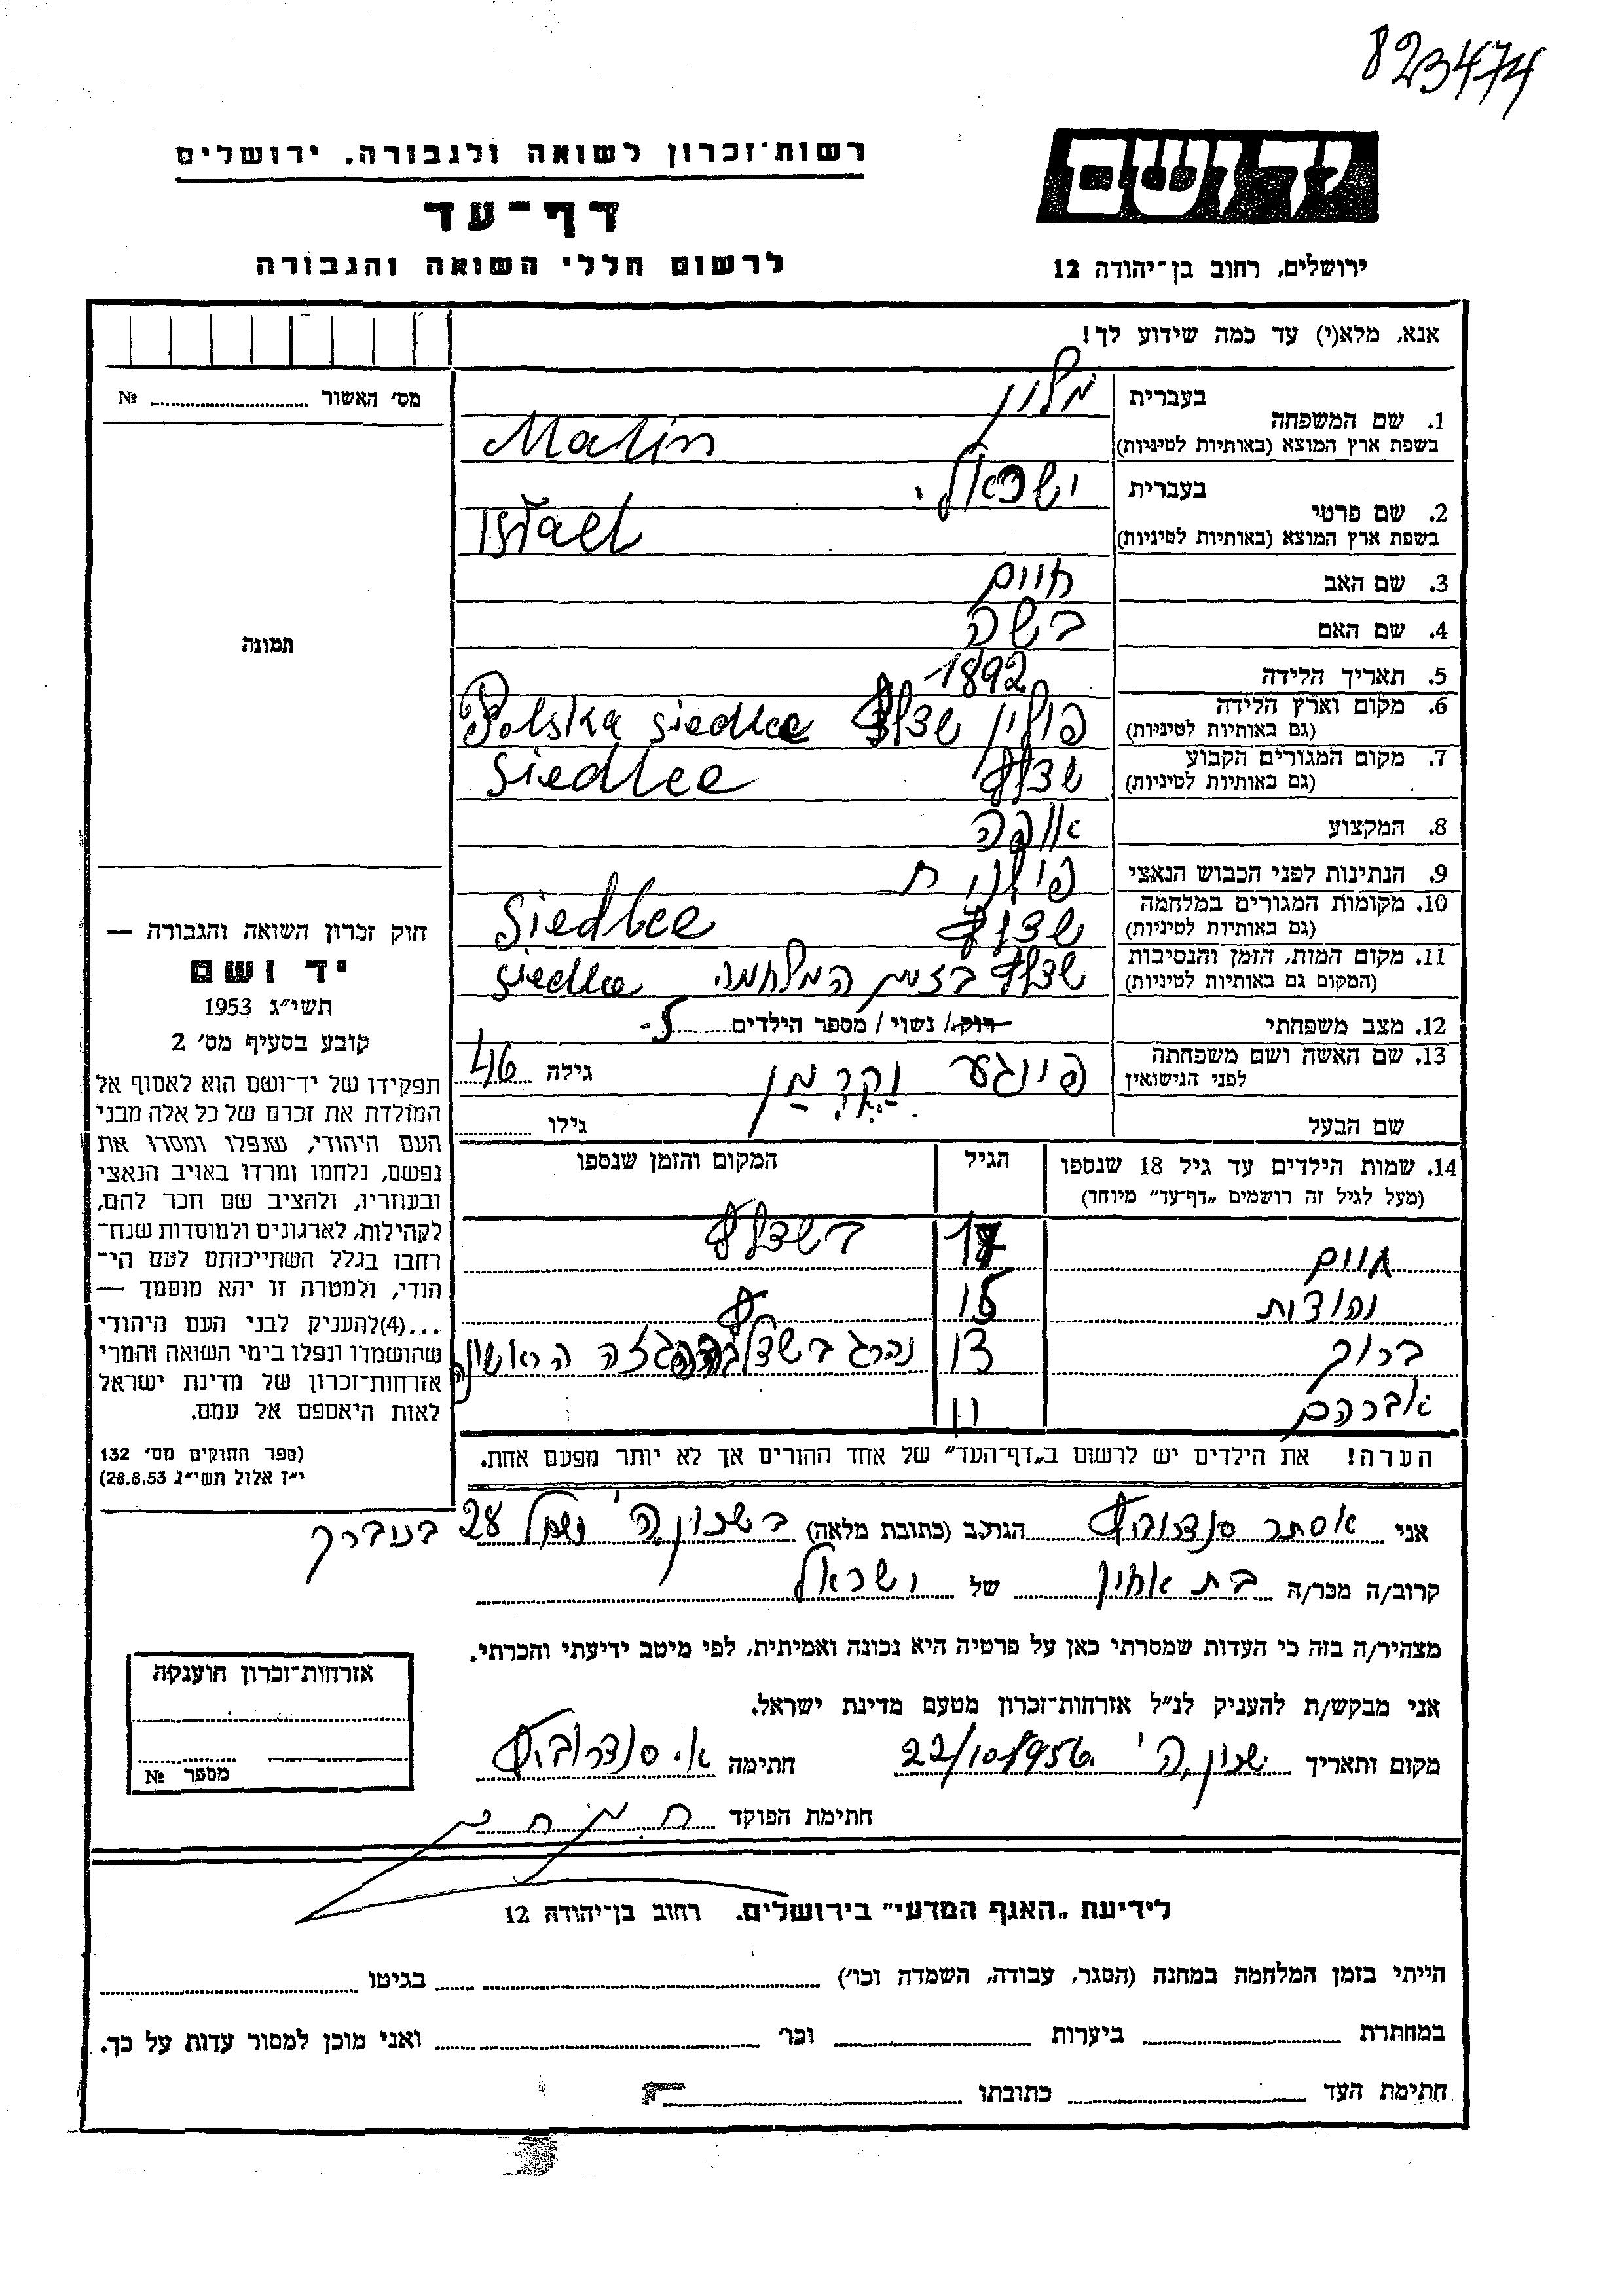 823474
יד ושם
רשות־זכרון לשואה ולגבורה, ירושלים
דף־עד
לרשום חללי השואה והגבורה
ירושלים, רחוב בן־יהודה 12
אנא, מלא(י) עד כמה שידוע לך!
מס׳ האשור № 
תמונה
חוק זכרון השואה והגבורה —
יד ושם
תשי״ג 1953
קובע בסעיף מס׳ 2
תפקידו של יד־ושם הוא לאסוף אל
המולדת את זכרם של כל אלה מבני
העם היהודי, שנפלו ומסרו את
נפשם, נלחמו ומרדו באויב הנאצי
ובעוזריו, ולהציב שם וזכר להם,
לקהילות, לארגונים ולמוסדות שנח־
רבו בגלל השתייכותם לעם הי־
הודי, ולמטרה זו יהא מוסמך —
...(4)להעניק לבני העם היהודי
שהושמדו ונפלו בימי השואה והמרי
אזרחות־זכרון של מדינת ישראל
לאות היאספם אל עמם.
(ספר החוקים מס׳ 132
י״ז אלול תשי״ג 28.8.53)
1. שם המשפחה בעברית מלין
בשפת ארץ המוצא (באותיות לטיניות) Malin
2. שם פרטי בעברית ישראל
בשפת ארץ המוצא (באותיות לטיניות) Israel
3. שם האב חיים
4. שם האם בשה
5. תאריך הלידה 1892
6. מקום וארץ הלידה (גם באותיות לטיניות) פולין שדלץ Polska siedlce
7. מקום המגורים הקבוע (גם באותיות לטיניות) שדלץ Siedlce
8. המקצוע אופה
9. הנתינות לפני הכבוש הנאצי פולנית
10. מקומות המגורים במלחמה (גם באותיות לטיניות) שדלץ Siedlce
11. מקום המות, הזמן והנסיבות (המקום גם באותיות לטיניות) שדלץ בזמן המלחמה siedlce
12. מצב משפחתי רוק/ נשוי/ מספר הילדים 5-
13. שם האשה ושם משפחתה לפני הנישואין פיגע גילה 46
שם הבעל גילו
14. שמות הילדים עד גיל 18 שנספו הגיל המקום והזמן שנספו
(מעל לגיל זה רושמים „דף־עד״ מיוחד)
חיים 17 בשדלץ
יהודית 15
ברוך 13 נהרג בשדלץ בהפגזה הראשונה
אברהם 11
הערה! את הילדים יש לרשום ב„דף־העד״ של אחד ההורים אך לא יותר מפעם אחת.
אני אסתר הגר/ב (כתובת מלאה) בשכון ה׳ 28 בני ברק
קרוב/ה מכר/ה בת אחין של ישראל
מצהיר/ה בזה כי העדות שמסרתי כאן על פרטיה היא נכונה ואמיתית, לפי מיטב ידיעתי והכרתי.
אני מבקש/ת להעניק לנ״ל אזרחות־זכרון מטעם מדינת ישראל.
מקום ותאריך שכון ה׳ 22/10/1956 חתימה
חתימת הפוקד
אזרחות־זכרון הוענקה
מספר №
לידיעת „האגף המדעי״ בירושלים, רחוב בן־יהודה 12
הייתי בזמן המלחמה במחנה (הסגר, עבודה, השמדה וכו׳) בגיטו
במחתרת ביערות וכו׳ ואני מוכן למסור עדות על כך.
חתימת העד כתובתו